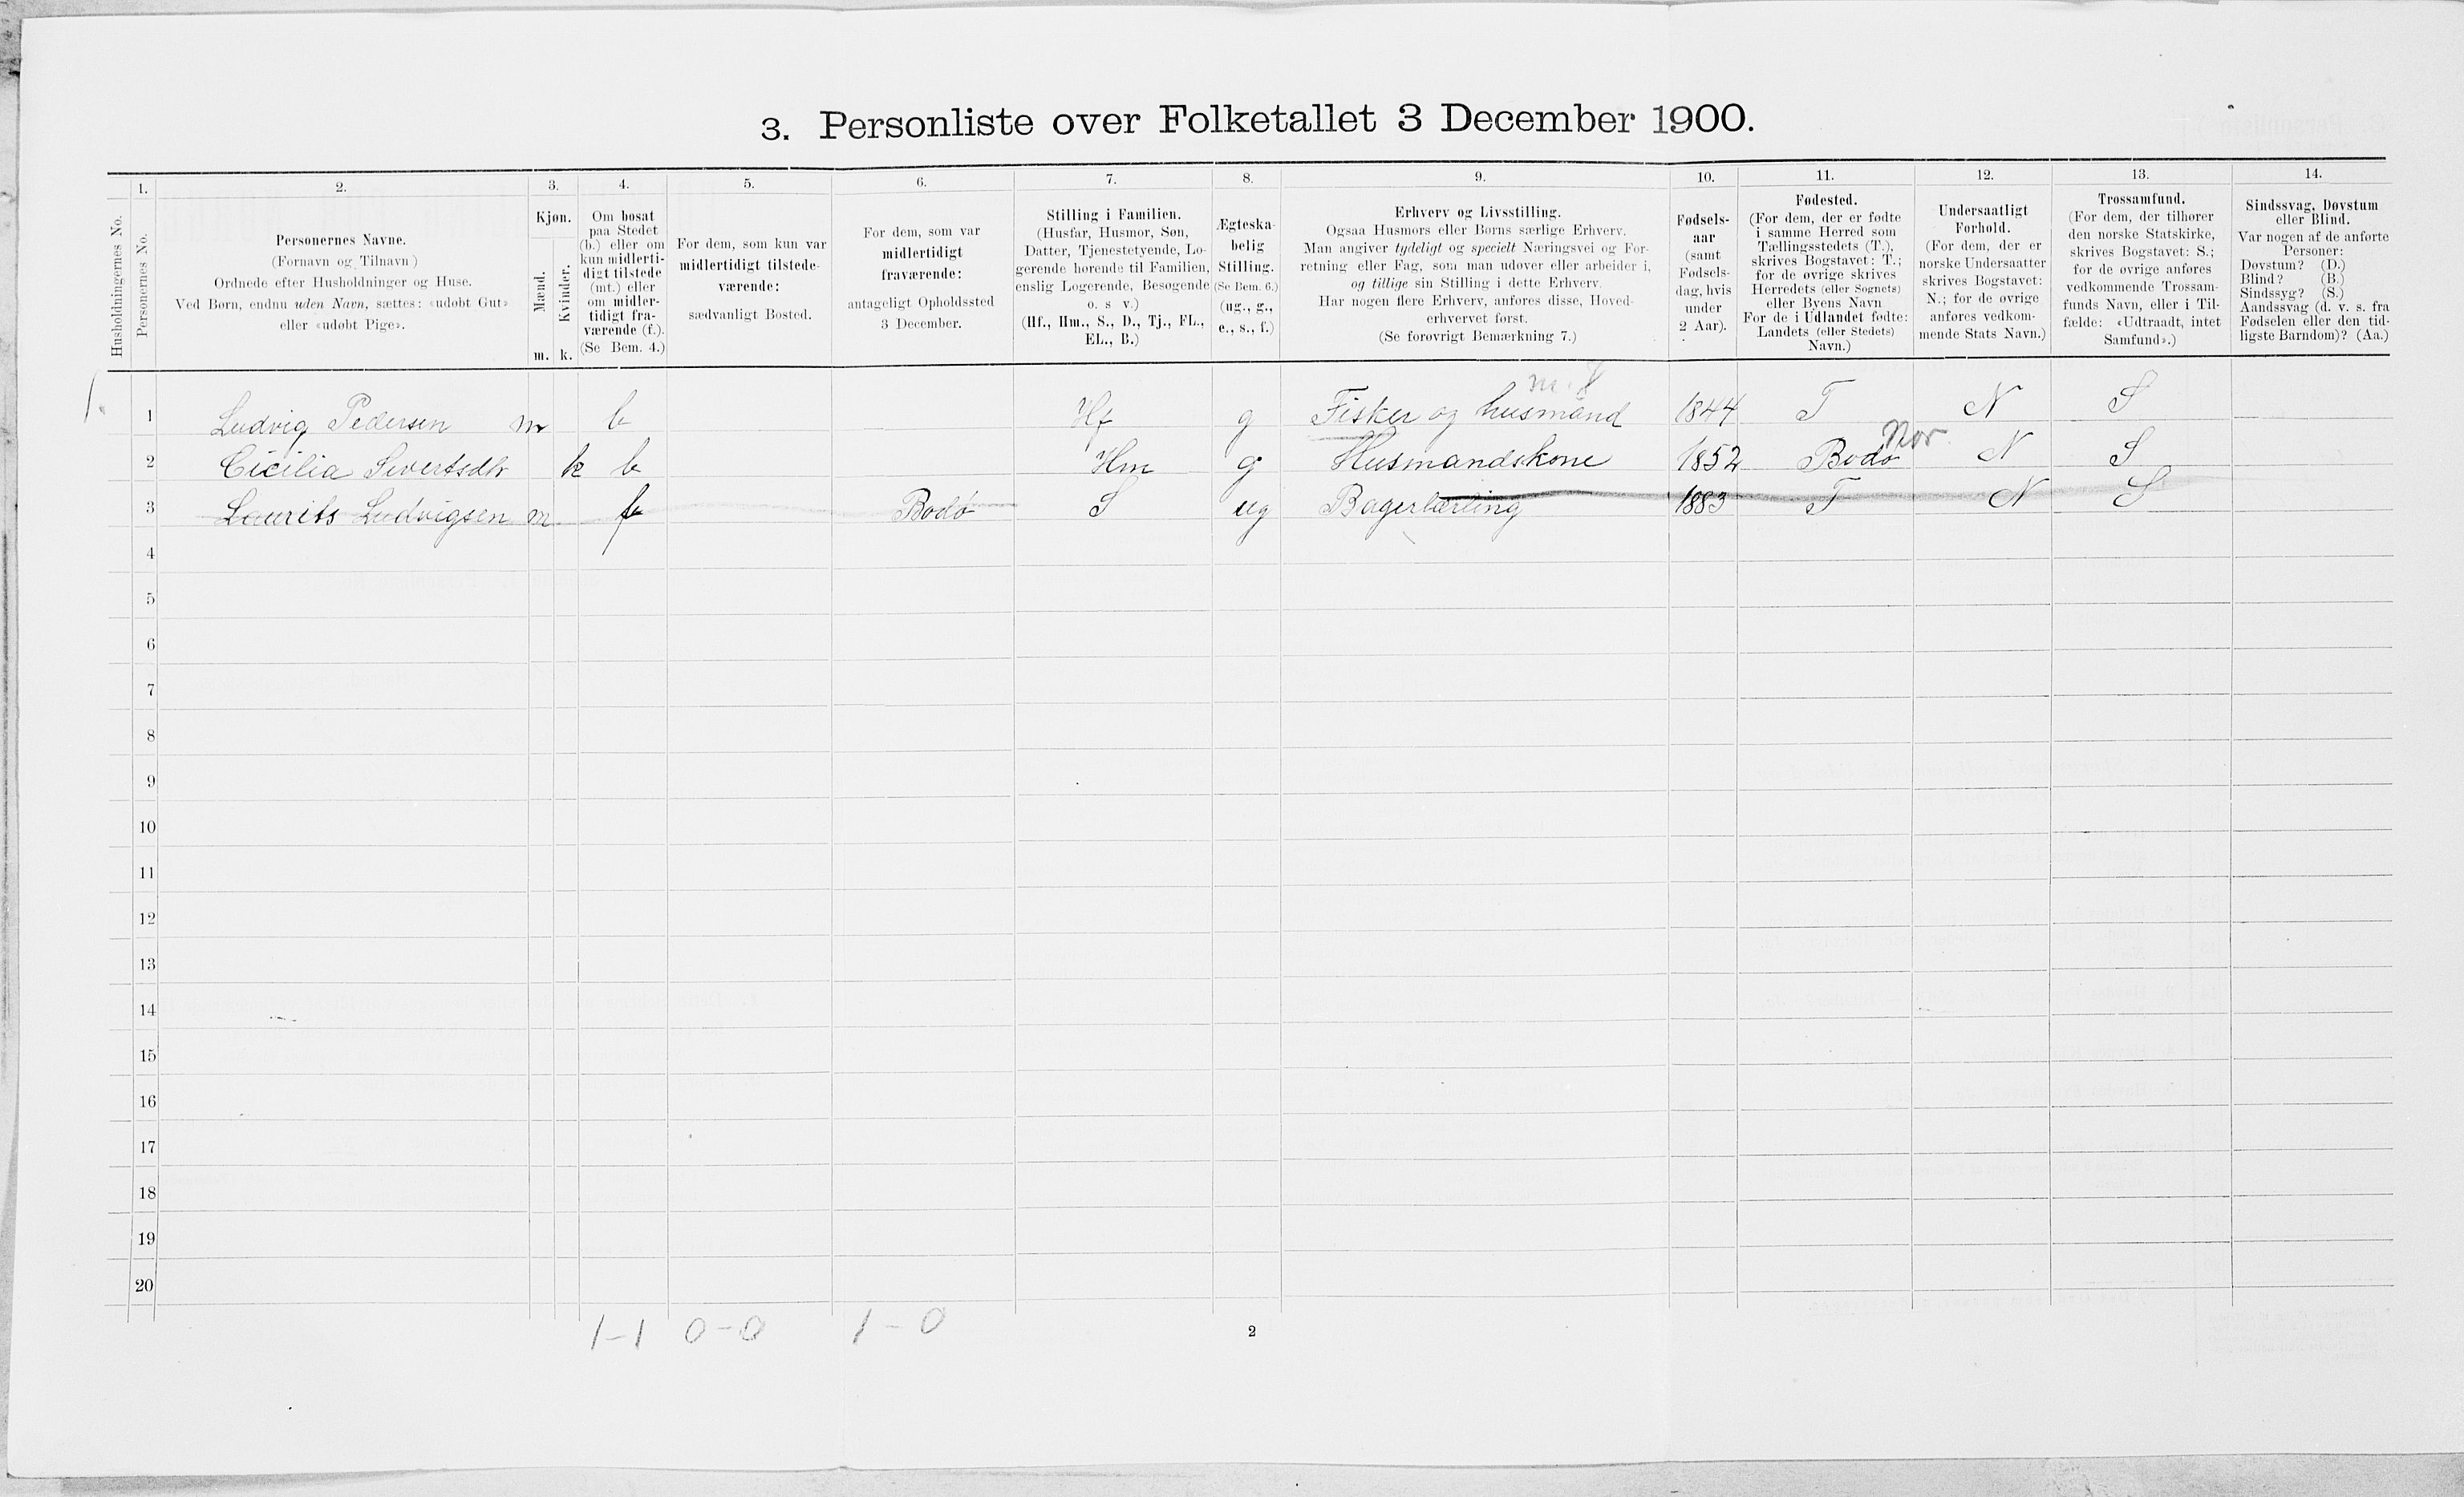 3. Personliste over Folketallet 3 December 1900.
Husholdningernes No.
1.
Personernes No.
2.
Personernes Navne.
(Fornavn og Tilnavn)
Ordnede efter Husholdninger og Huse.
Ved Børn, endnu uden Navn, sættes: «udøbt Gut»
eller «udøbt Pige».
3.
Kjøn.
Mænd.
Kvinder.
m. k.
4.
Om bosat
paa Stedet
(b.) eller om
kun midlerti-
digt tilstede
(mt.) eller
om midler-
tidigt fra-
værende (f.).
(Se Bem. 4.)
5.
For dem, som kun var
midlertidigt tilstede-
værende:
sædvanligt Bosted.
6.
For dem, som var
midlertidigt
fraværende:
antageligt Opholdssted
3 December.
7.
Stilling i Familien.
(Husfar, Husmor, Søn,
Datter, Tjenestetyende, Lo-
gerende hørende til Familien,
enslig Logerende, Besøgende
o. s v.)
(Hf., Hm., S., D., Tj., FL.,
EL., B.)
8.
Ægteska-
belig
Stilling.
(Se Bem. 6.)
(ug., g.,
e., s., f.)
9.
Erhverv og Livsstilling.
Ogsaa Husmors eller Børns særlige Erhverv.
Man angiver tydeligt og specielt Næringsvei og For-
retning eller Fag, som man udøver eller arbeider i,
og tillige sin Stilling i dette Erhverv.
Har nogen flere Erhverv, anføres disse, Hoved-
erhvervet først.
(Se forøvrigt Bemærkning 7.)
10.
Fødsels-
aar
(samt
Fødsels-
dag, hvis
under
2 Aar).
11.
Fødested.
(For dem, der er fødte
i samme Herred som
Tællingsstedets (T.),
skrives Bogstavet: T.;
for de øvrige skrives
Herredets (eller Sognets)
eller Byens Navn
For de i Udlandet fødte:
Landets (eller Stedets)
Navn.)
12.
Undersaatligt
Forhold.
(For dem, der er
norske Undersaatter
skrives Bogstavet:
N.; for de øvrige
anføres vedkom-
mende Stats Navn.)
13.
Trossamfund.
(For dem, der tilhører
den norske Statskirke,
skrives Bogstavet: S.;
for de øvrige anføres
vedkommende Trossam-
funds Navn, eller i Til-
fælde: «Udtraadt, intet
Samfund».)
14.
Sindssvag, Døvstum
eller Blind.
Var nogen af de anførte
Personer:
Døvstum? (D.)
Blind? (B.)
Sindssyg? (S.)
Aandssvag (d. v. s. fra
Fødselen eller den tid-
ligste Barndom)? (Aa.)
1. 1 Ludvig Pedersen m b Hf g Fisker og husmand 1844 T N S
Nor
2 Cicilia Sivertsdtr k b Hm g Husmandskone 1852 Bodø N S
3 Laurits Ludvigsen m f Bodø S ug Bagerlærling 1883 T N S
4
5
6
7
8
9
10
11
12
13
14
15
16
17
18
19
20
1-1 0-0 1-0
2